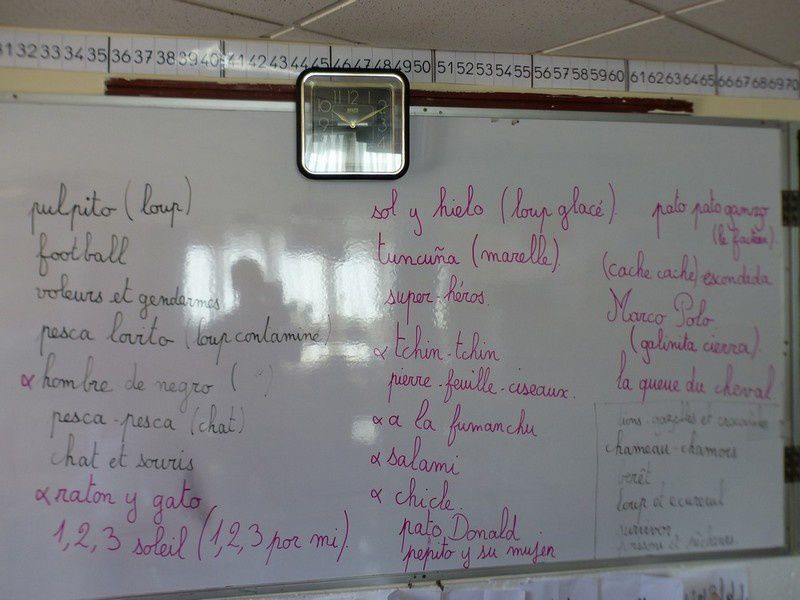 31 32 33 34 35 36 37 38 39 40 41 42 43 44 45 46 47 48 49 50 51 52 53 54 55 56 57 58 59 60 61 62 63 64 65 66 67 68 69 70
pulpito (loup)
football
voleurs et gendarmes
pesca lovito (loup contaminé)
α hombre de negro ( )
pesca-pesca (chat)
chat et souris
α raton y gato
1, 2, 3 soleil (1, 2, 3 por mi).
sol y hielo (loup glacé).
tuncuña (marelle).
super-héros.
α tchin-tchin
pierre-feuille-ciseaux.
α a la fumanchu
α salami
α chicle.
pato Donald
pepito y su mujen
pato pato ganzo
(le facteur).
(cache cache) escondida
Marco Polo
(galinita cierra).
la queue du cheval
lions-gazelles et crocodiles
chameau-chamois
loup et écureuil
survivor